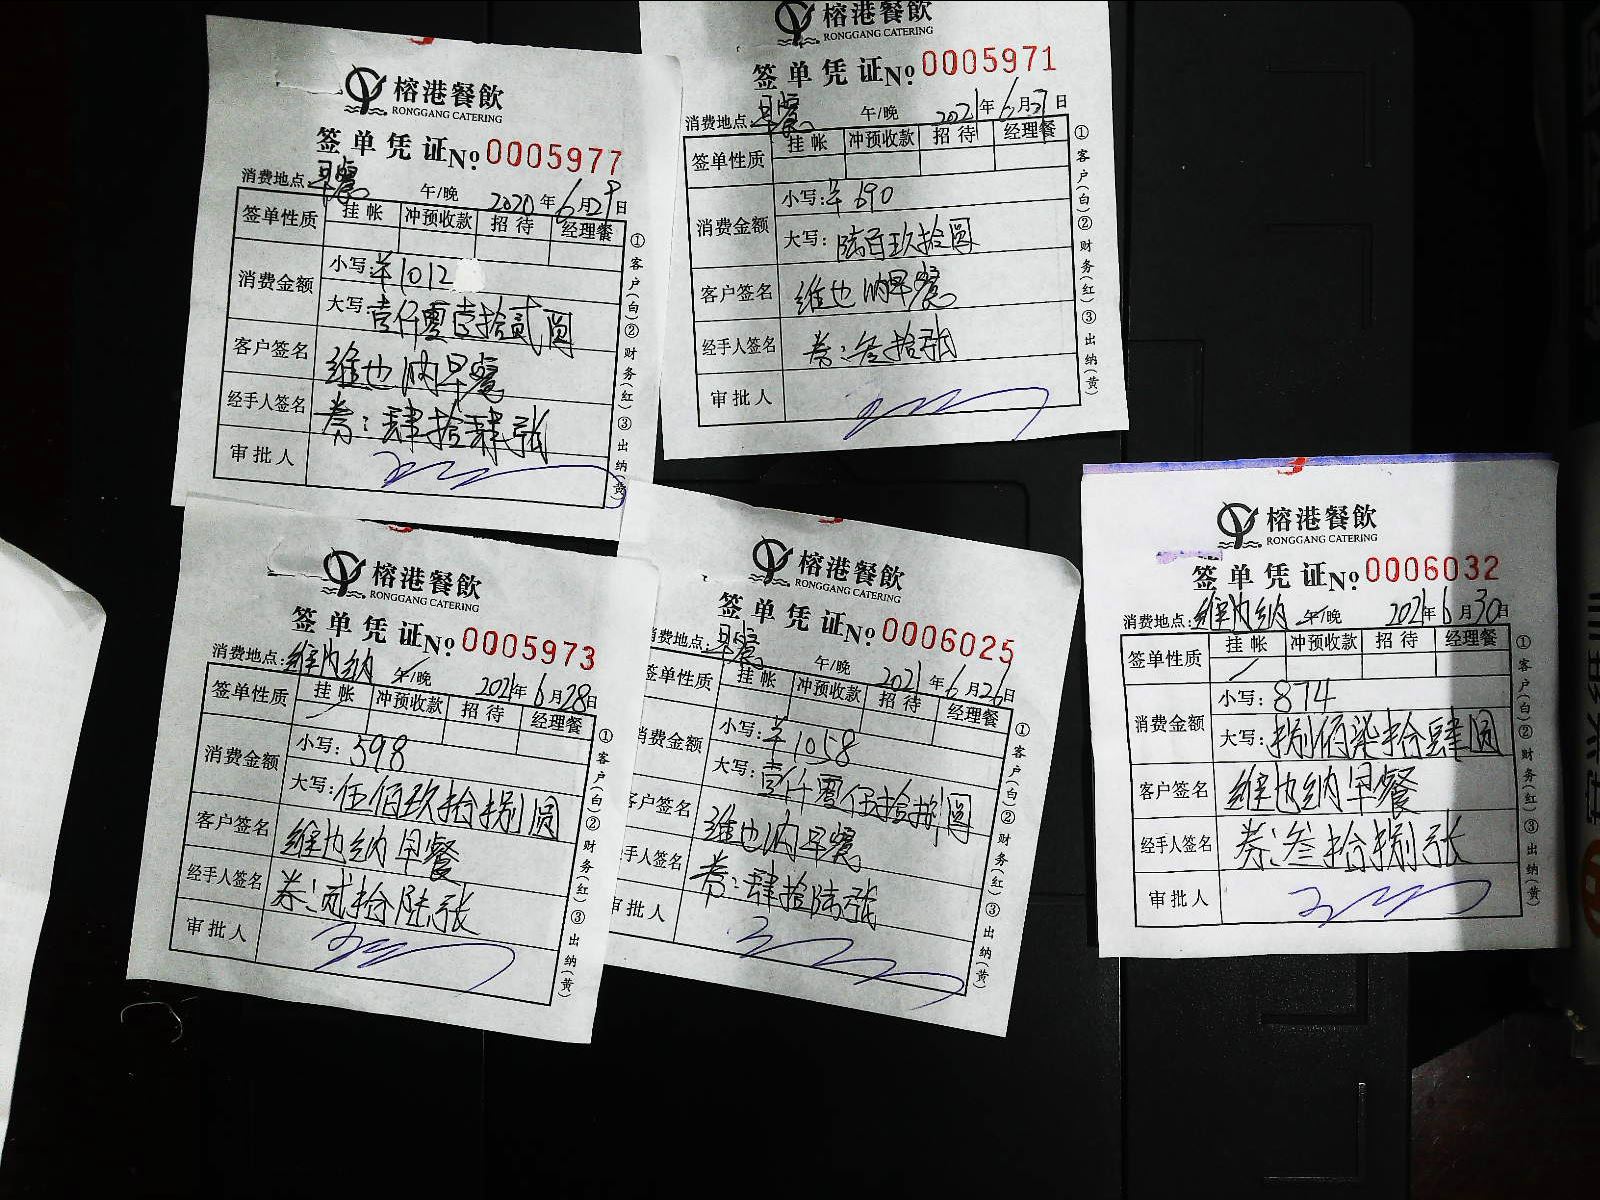 榕港餐飲
RONGGANG CATERING
签单凭证№0005977
消费地点:早餐 午/晚 2020年6月29日
签单性质 挂帐 冲预收款 招待 经理餐
消费金额 小写:¥1012
大写:壹仟零壹拾贰圆
客户签名 维也纳早餐
经手人签名 券:肆拾肆张
审批人
①客户(白)②财务(红)③出纳(黄)
榕港餐飲
RONGGANG CATERING
签单凭证№0005971
消费地点:早餐 午/晚 2021年6月27日
签单性质 挂帐 冲预收款 招待 经理餐
消费金额 小写:¥690
大写:陆百玖拾圆
客户签名 维也纳早餐
经手人签名 券:叁拾张
审批人
①客户(白)②财务(红)③出纳(黄)
榕港餐飲
RONGGANG CATERING
签单凭证№0005973
消费地点:维也纳 午/晚 2021年6月28日
签单性质 挂帐 冲预收款 招待 经理餐
消费金额 小写:598
大写:伍佰玖拾捌圆
客户签名 维也纳早餐
经手人签名 券:贰拾陆张
审批人
①客户(白)②财务(红)③出纳(黄)
榕港餐飲
RONGGANG CATERING
签单凭证№0006025
消费地点:早餐 午/晚 2021年6月26日
签单性质 挂帐 冲预收款 招待 经理餐
消费金额 小写:¥1058
大写:壹仟零伍拾捌圆
客户签名 维也纳早餐
手人签名 券:肆拾陆张
审批人
①客户(白)②财务(红)③出纳(黄)
榕港餐飲
RONGGANG CATERING
签单凭证№0006032
消费地点:维也纳 午/晚 2021年6月30日
签单性质 挂帐 冲预收款 招待 经理餐
消费金额 小写:874
大写:捌佰柒拾肆圆
客户签名 维也纳早餐
经手人签名 券:叁拾捌张
审批人
①客户(白)②财务(红)③出纳(黄)